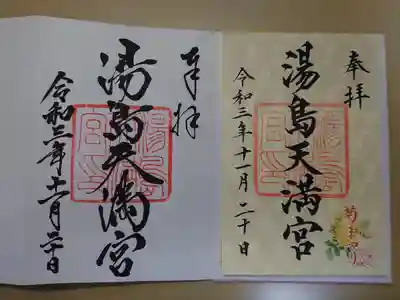 奉拝
湯島天満宮
令和三年十一月二十日
奉拝
湯島天満宮
令和三年十一月二十日